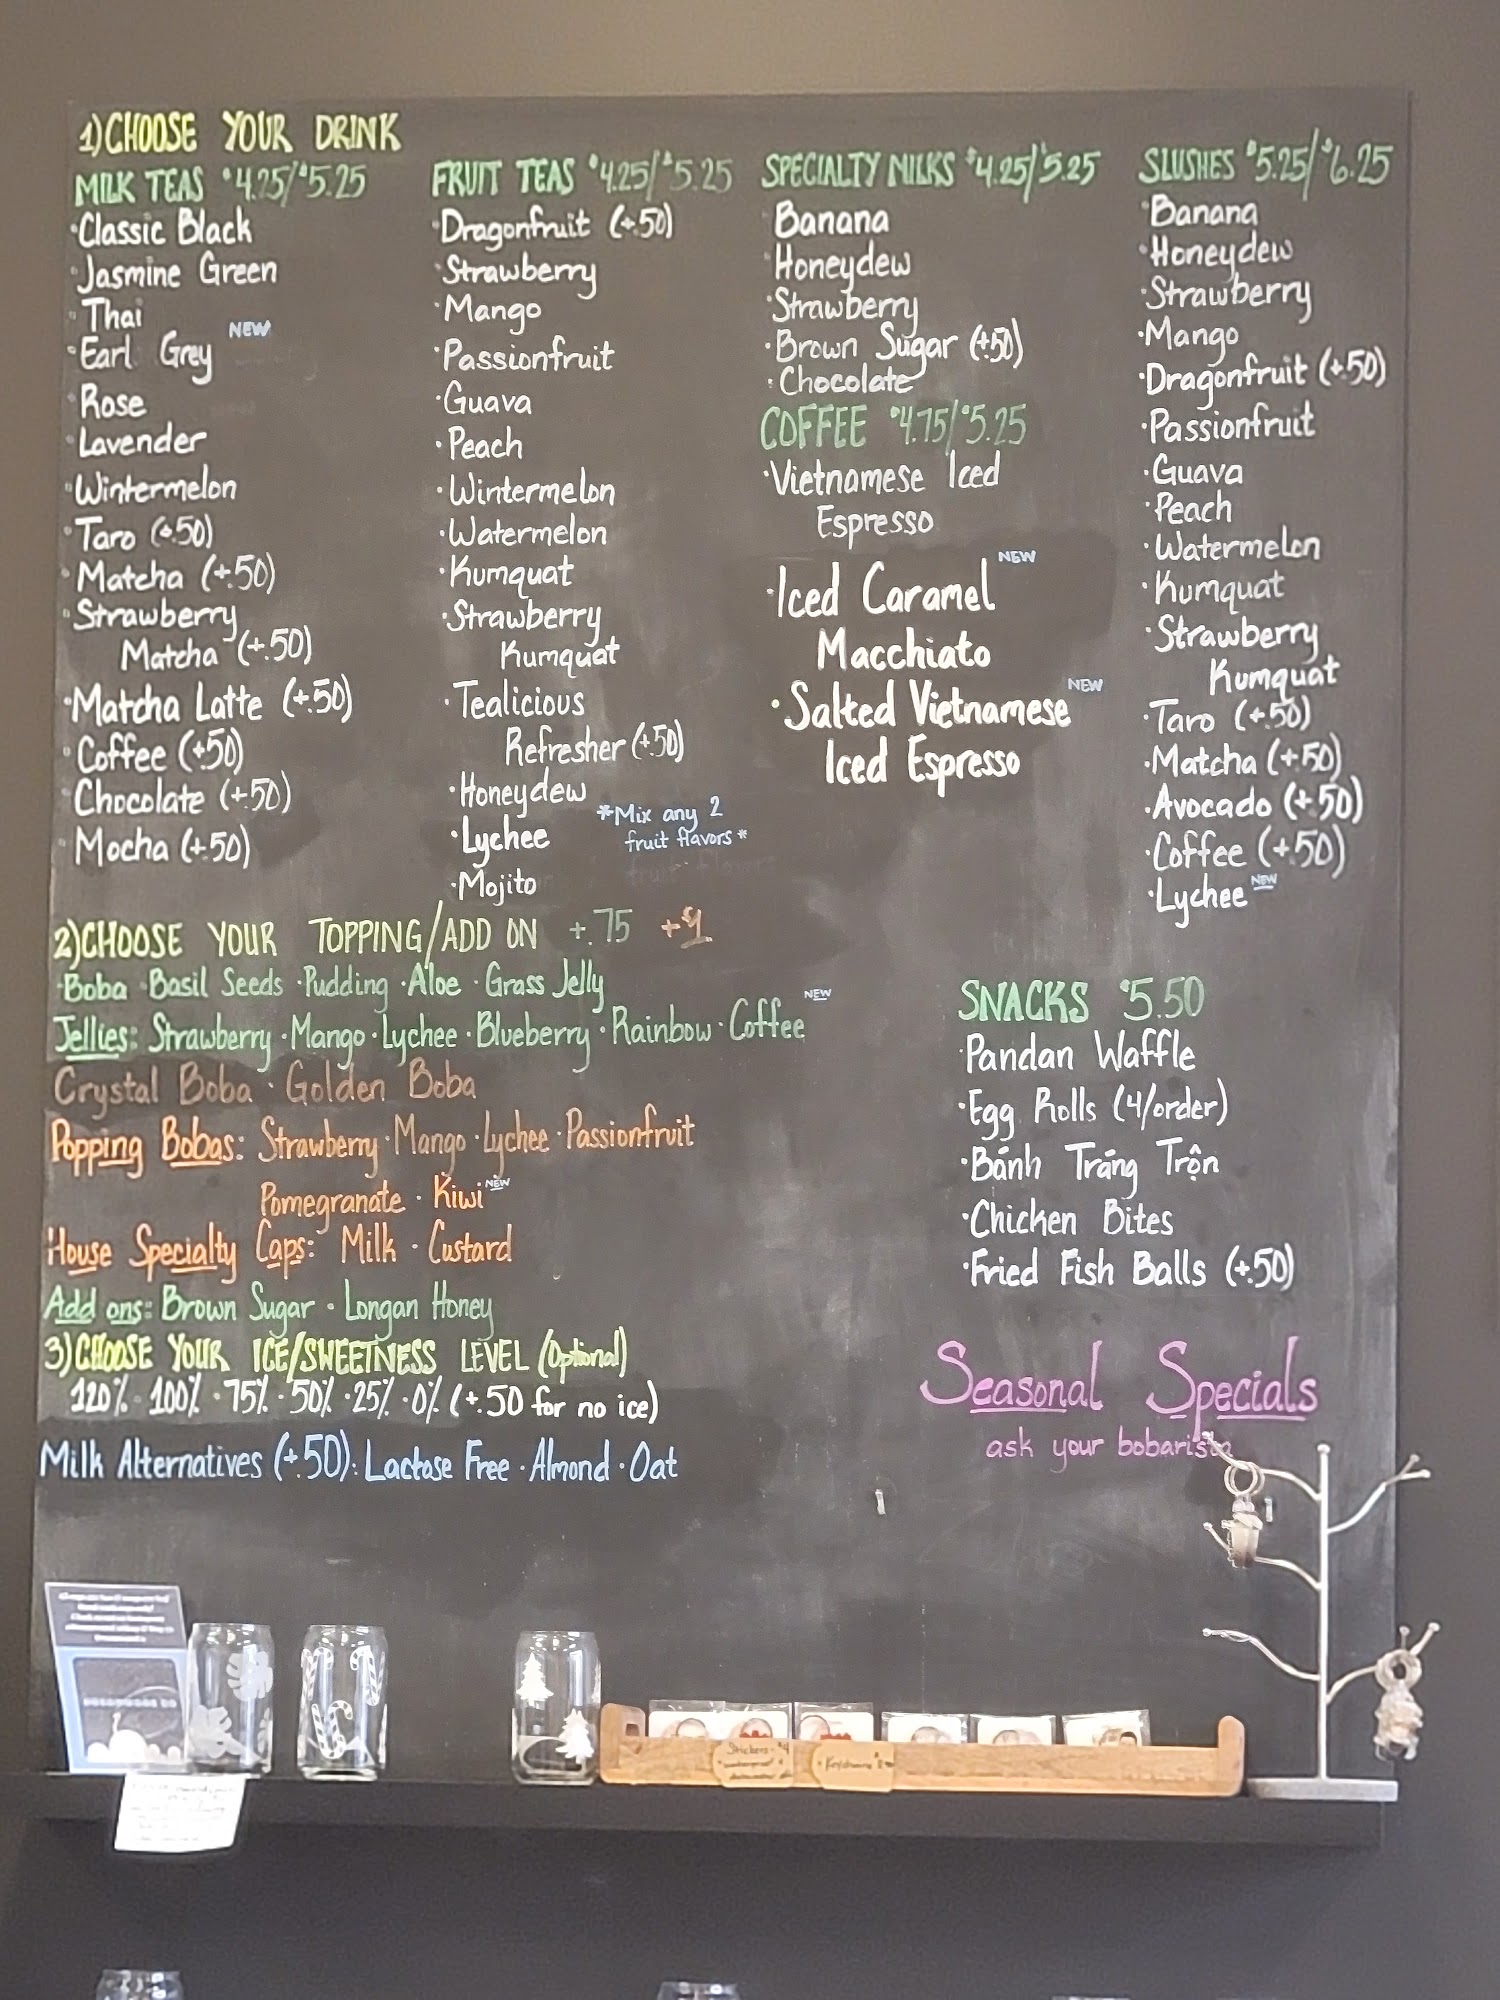 1)CHOOSE YOUR DRINK
MILK TEAS $4.25/$5.25
·Classic Black
·Jasmine Green
·Thai
·Earl Grey NEW
·Rose
·Lavender
·Wintermelon
·Taro (+.50)
·Matcha (+.50)
·Strawberry
Matcha (+.50)
·Matcha Latte (+.50)
·Coffee (+.50)
·Chocolate (+.50)
·Mocha (+.50)
FRUIT TEAS $4.25/$5.25
·Dragonfruit (+.50)
·Strawberry
·Mango
·Passionfruit
·Guava
·Peach
·Wintermelon
·Watermelon
·Kumquat
·Strawberry
Kumquat
·Tealicious
Refresher (+.50)
·Honeydew
·Lychee
·Mojito
*Mix any 2
fruit flavors*
SPECIALTY MILKS $4.25/5.25
·Banana
·Honeydew
·Strawberry
·Brown Sugar (+.50)
·Chocolate
COFFEE $4.75/$5.25
·Vietnamese Iced
Espresso
·Iced Caramel NEW
Macchiato
·Salted Vietnamese NEW
Iced Espresso
SLUSHES $5.25/$6.25
·Banana
·Honeydew
·Strawberry
·Mango
·Dragonfruit (+.50)
·Passionfruit
·Guava
·Peach
·Watermelon
·Kumquat
·Strawberry
Kumquat
·Taro (+.50)
·Matcha (+.50)
·Avocado (+.50)
·Coffee (+.50)
·Lychee NEW
2)CHOOSE YOUR TOPPING/ADD ON +.75 +$1
·Boba ·Basil Seeds ·Pudding ·Aloe ·Grass Jelly
Jellies: Strawberry ·Mango ·Lychee ·Blueberry ·Rainbow ·Coffee NEW
Crystal Boba · Golden Boba
Popping Bobas: Strawberry ·Mango ·Lychee ·Passionfruit
Pomegranate · Kiwi NEW
House Specialty Caps: Milk · Custard
Add ons: Brown Sugar · Longan Honey
3)CHOOSE YOUR ICE/SWEETNESS LEVEL (Optional)
120% ·100% ·75% ·50% ·25% ·0% (+.50 for no ice)
Milk Alternatives (+.50): Lactose Free ·Almond ·Oat
SNACKS $5.50
·Pandan Waffle
·Egg Rolls (4/order)
·Bánh Tráng Trộn
·Chicken Bites
·Fried Fish Balls (+.50)
Seasonal Specials
ask your bobarista
Stickers